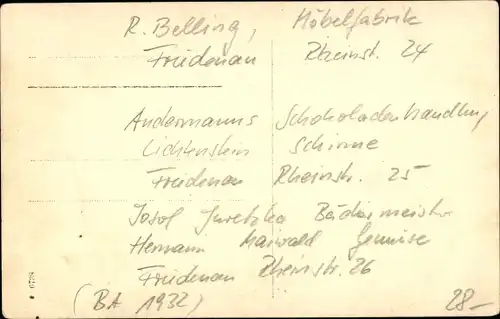 R. Belling, Möbelfabrik
Friedenau Rheinst. 24
Andermanns Schokoladenhandlung
Lichtenstein Schirme
Friedenau Rheinstr. 25
Josef Juretzka Bäckermeister
Hermann Maiwald Gemüse
Friedenau Rheinstr. 26
(BA 1932)
28-